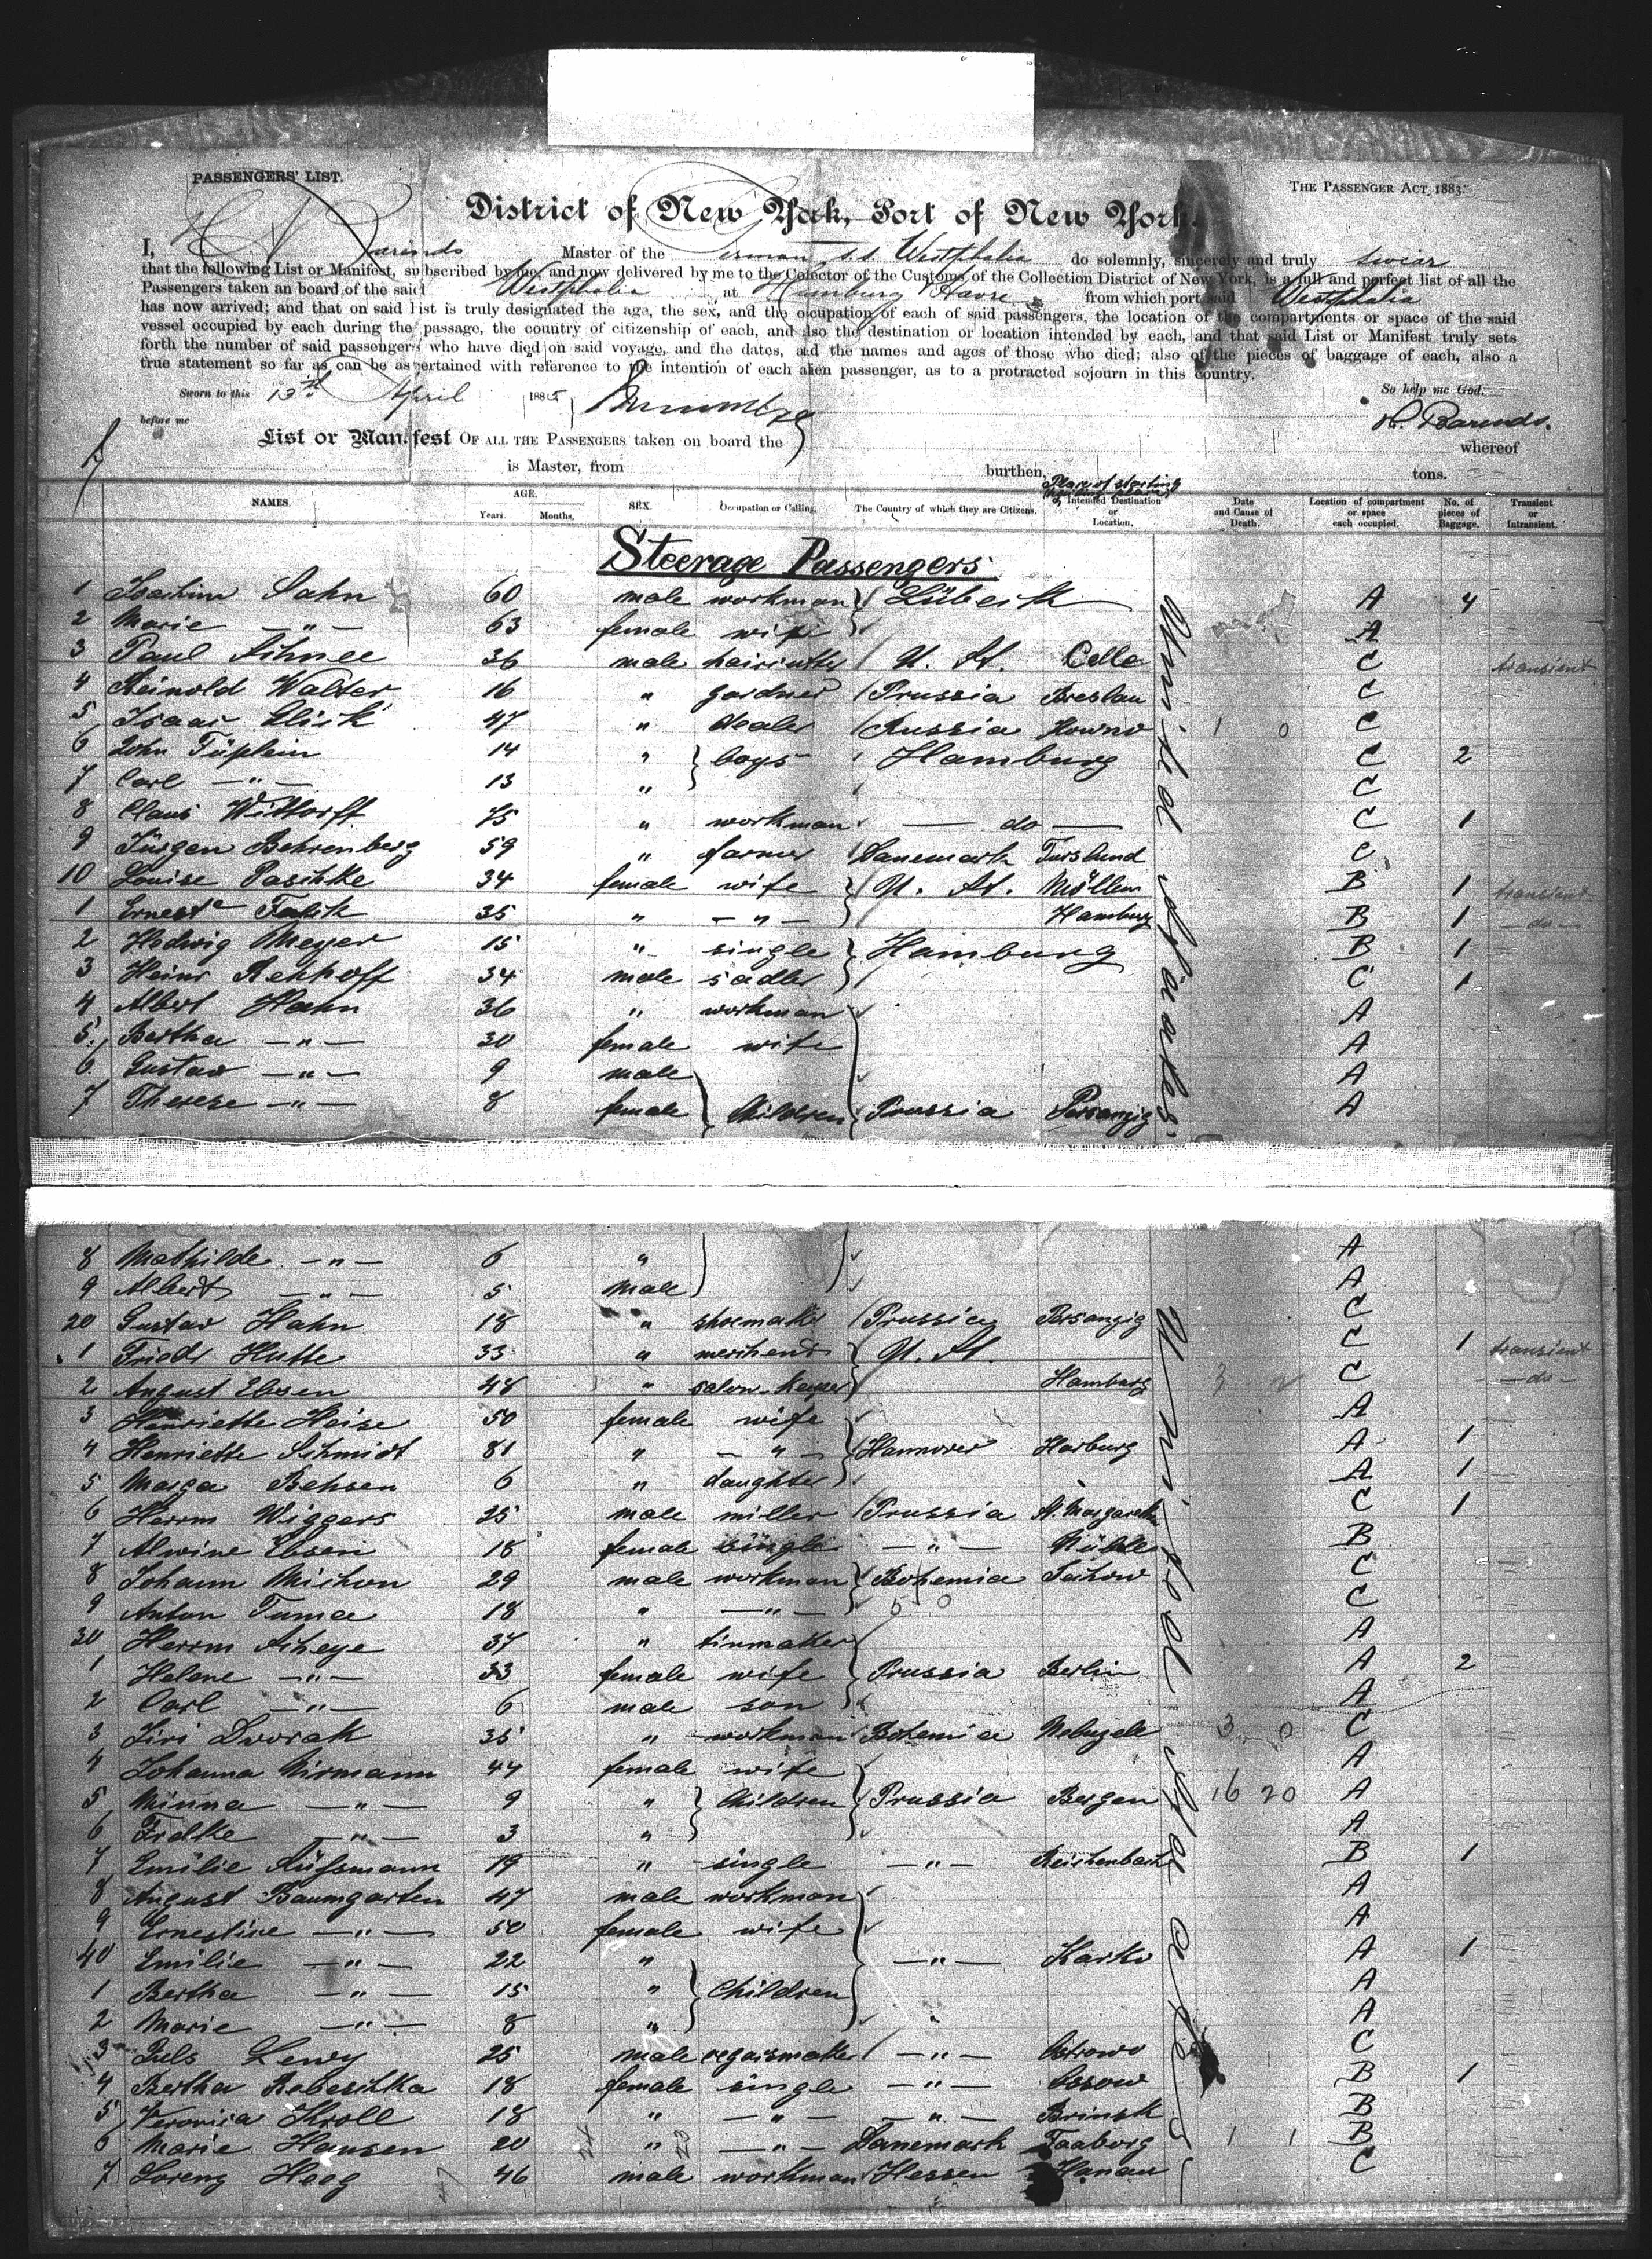 PASSENGERS' LIST.
THE PASSENGER ACT, 1883.
District of New York, Port of New York.
I, Barends Master of the German s.s. Westphalia do solemnly, sincerely and truly swear
that the following List or Manifest, subscribed by me, and now delivered by me to the Collector of the Customs of the Collection District of New York, is a full and perfect list of all the
Passengers taken an board of the said Westphalia at Hamburg Havre from which port said Westphalia
has now arrived; and that on said list is truly designated the age, the sex, and the ocupation of each of said passengers, the location of the compartments or space of the said
vessel occupied by each during the passage, the country of citizenship of each, and also the destination or location intended by each, and that said List or Manifest truly sets
forth the number of said passengers who have died on said voyage, and the dates, and the names and ages of those who died; also of the pieces of baggage of each, also a
true statement so far as can be ascertained with reference to the intention of each alien passenger, as to a protracted sojourn in this country.
Sworn to this 13th April 1885 So help me God.
before me H. Barends.
List or Manifest OF ALL THE PASSENGERS taken on board the whereof
is Master, from burthen tons.
Place of starting
NAMES. AGE. Years. Months. SEX. Occupation or Calling. The Country of which they are Citizens. Intended Destination or Location. Date and Cause of Death. Location of compartment or space each occupied. No. of pieces of Baggage. Transient or Intransient.
Steerage Passengers
United States
1 Joachim Sahn 60 male workman Lübeck A 4
2 Marie —"— 63 female wife A
3 Paul Schnee 36 male haircutter U. St. Celle C transient
4 Reinold Walter 16 " gardner Prussia Breslau C
5 Isaac Glick 47 " dealer Russia Kowno 1 0 C
6 John 14 " boys Hamburg C 2
7 Carl —"— 13 " C
8 Claus Wittorff 75 " workman — do — C 1
9 Jürgen Behrenberg 59 " farmer Danemark Turslund C
10 Louise Paschke 34 female wife U. St. Möllen B 1 transient
1 Ernest Falck 35 " —"— Hamburg B 1 —do—
2 Hedwig Meyer 15 " single Hamburg B 1
3 Heinr Rehhoff 34 male sadler C 1
4 Albert Hahn 36 " workman A
5 Bertha —"— 30 female wife A
6 Gustav —"— 9 male A
7 Therese —"— 8 female Children Prussia Persanzig A
8 Mathilde —"— 6 " A
9 Albert —"— 5 male A
20 Gustav Hahn 18 " shoemaker Prussia Persanzig C
United States
1 Friedr Hutte 33 " merchend U. St. C 1 transient
2 August Ebsen 48 " salon-keeper Hamburg 3 2 C —do—
3 Henriette Heise 50 female wife A
4 Henriette Schmidt 81 " —"— Hannover Harburg A 1
5 Marga Behsen 6 " daughter A 1
6 Herrm Wiggers 25 male miller Prussia St. Margareth C 1
7 Alwine Ebsen 18 female single —"— B
8 Johann Michon 29 male workman Bohemia Tachow C
9 Anton Tuma 18 " —"— 5 0 C
30 Herrm Scheye 37 " tinmaker A
1 Helene —"— 33 female wife Prussia Berlin A 2
2 Carl —"— 6 male son A
3 Jiri Dvorak 35 " workman Bohemia 3 0 C
4 Johanna Nirmann 44 female wife A
5 Minna —"— 9 " Children Prussia Bergen 16 20 A
6 Fredke —"— 3 " A
7 Emilie Süssmann 19 " single —"— Reichenbach B 1
8 August Baumgarten 47 male workman A
9 Ernestine —"— 50 female wife A
40 Emilie —"— 22 " —"— Karko A 1
1 Bertha —"— 15 " Children A
2 Marie —"— 8 " A
3 Juls Lewy 25 male segarsmaker —"— Ostrowo C
4 Bertha Rebeschka 18 female single —"— Ossow B 1
5 Veronica Kroll 18 " —"— —"— Brinsk B
6 Marie Hansen 20 " —"— Danemark Faaborg 1 1 B
7 Lorenz Heeg 46 male workman Hessen Hanau C
24 23